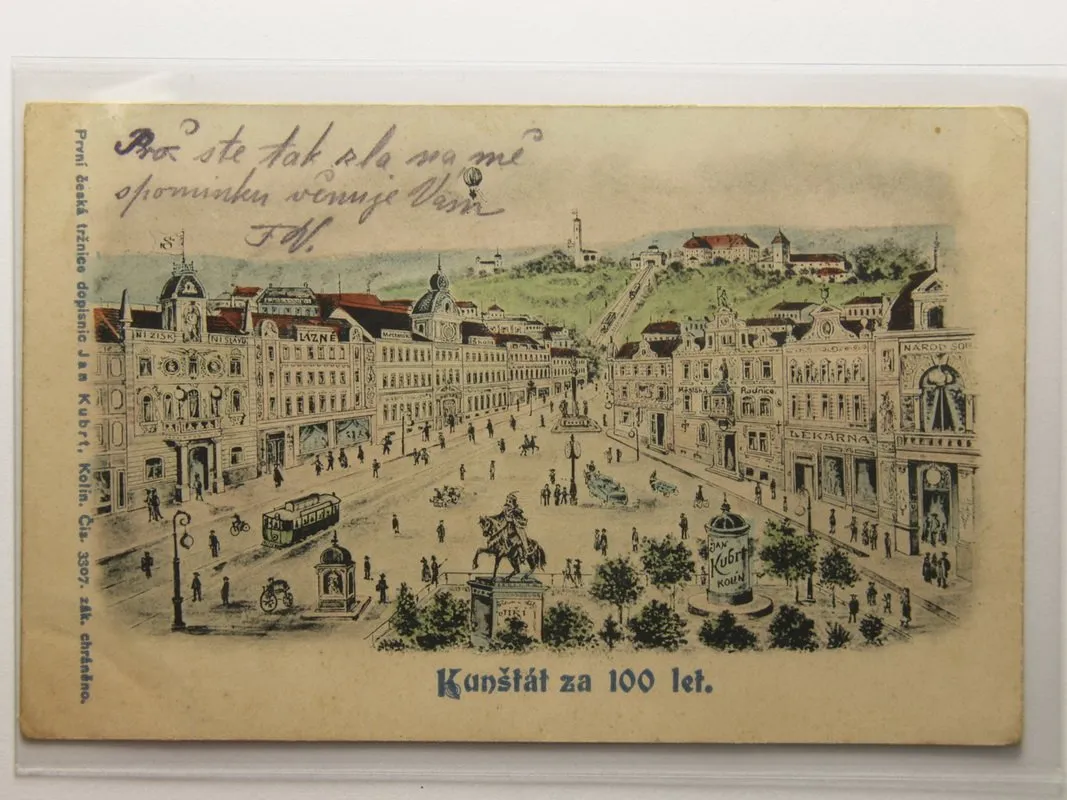 Proč ste tak zla na mě
spominku věnuje Vám
První česká tržnice dopisnic Jan Kubrt, Kolín. Čís. 3307. zák. chráněno.
NIZISK NISLÁVY
LÁZNĚ
Městská Radnice
LEKARNA
NÁROD
JAN
Kubrt
KOLÍN
Kunštát za 100 let.